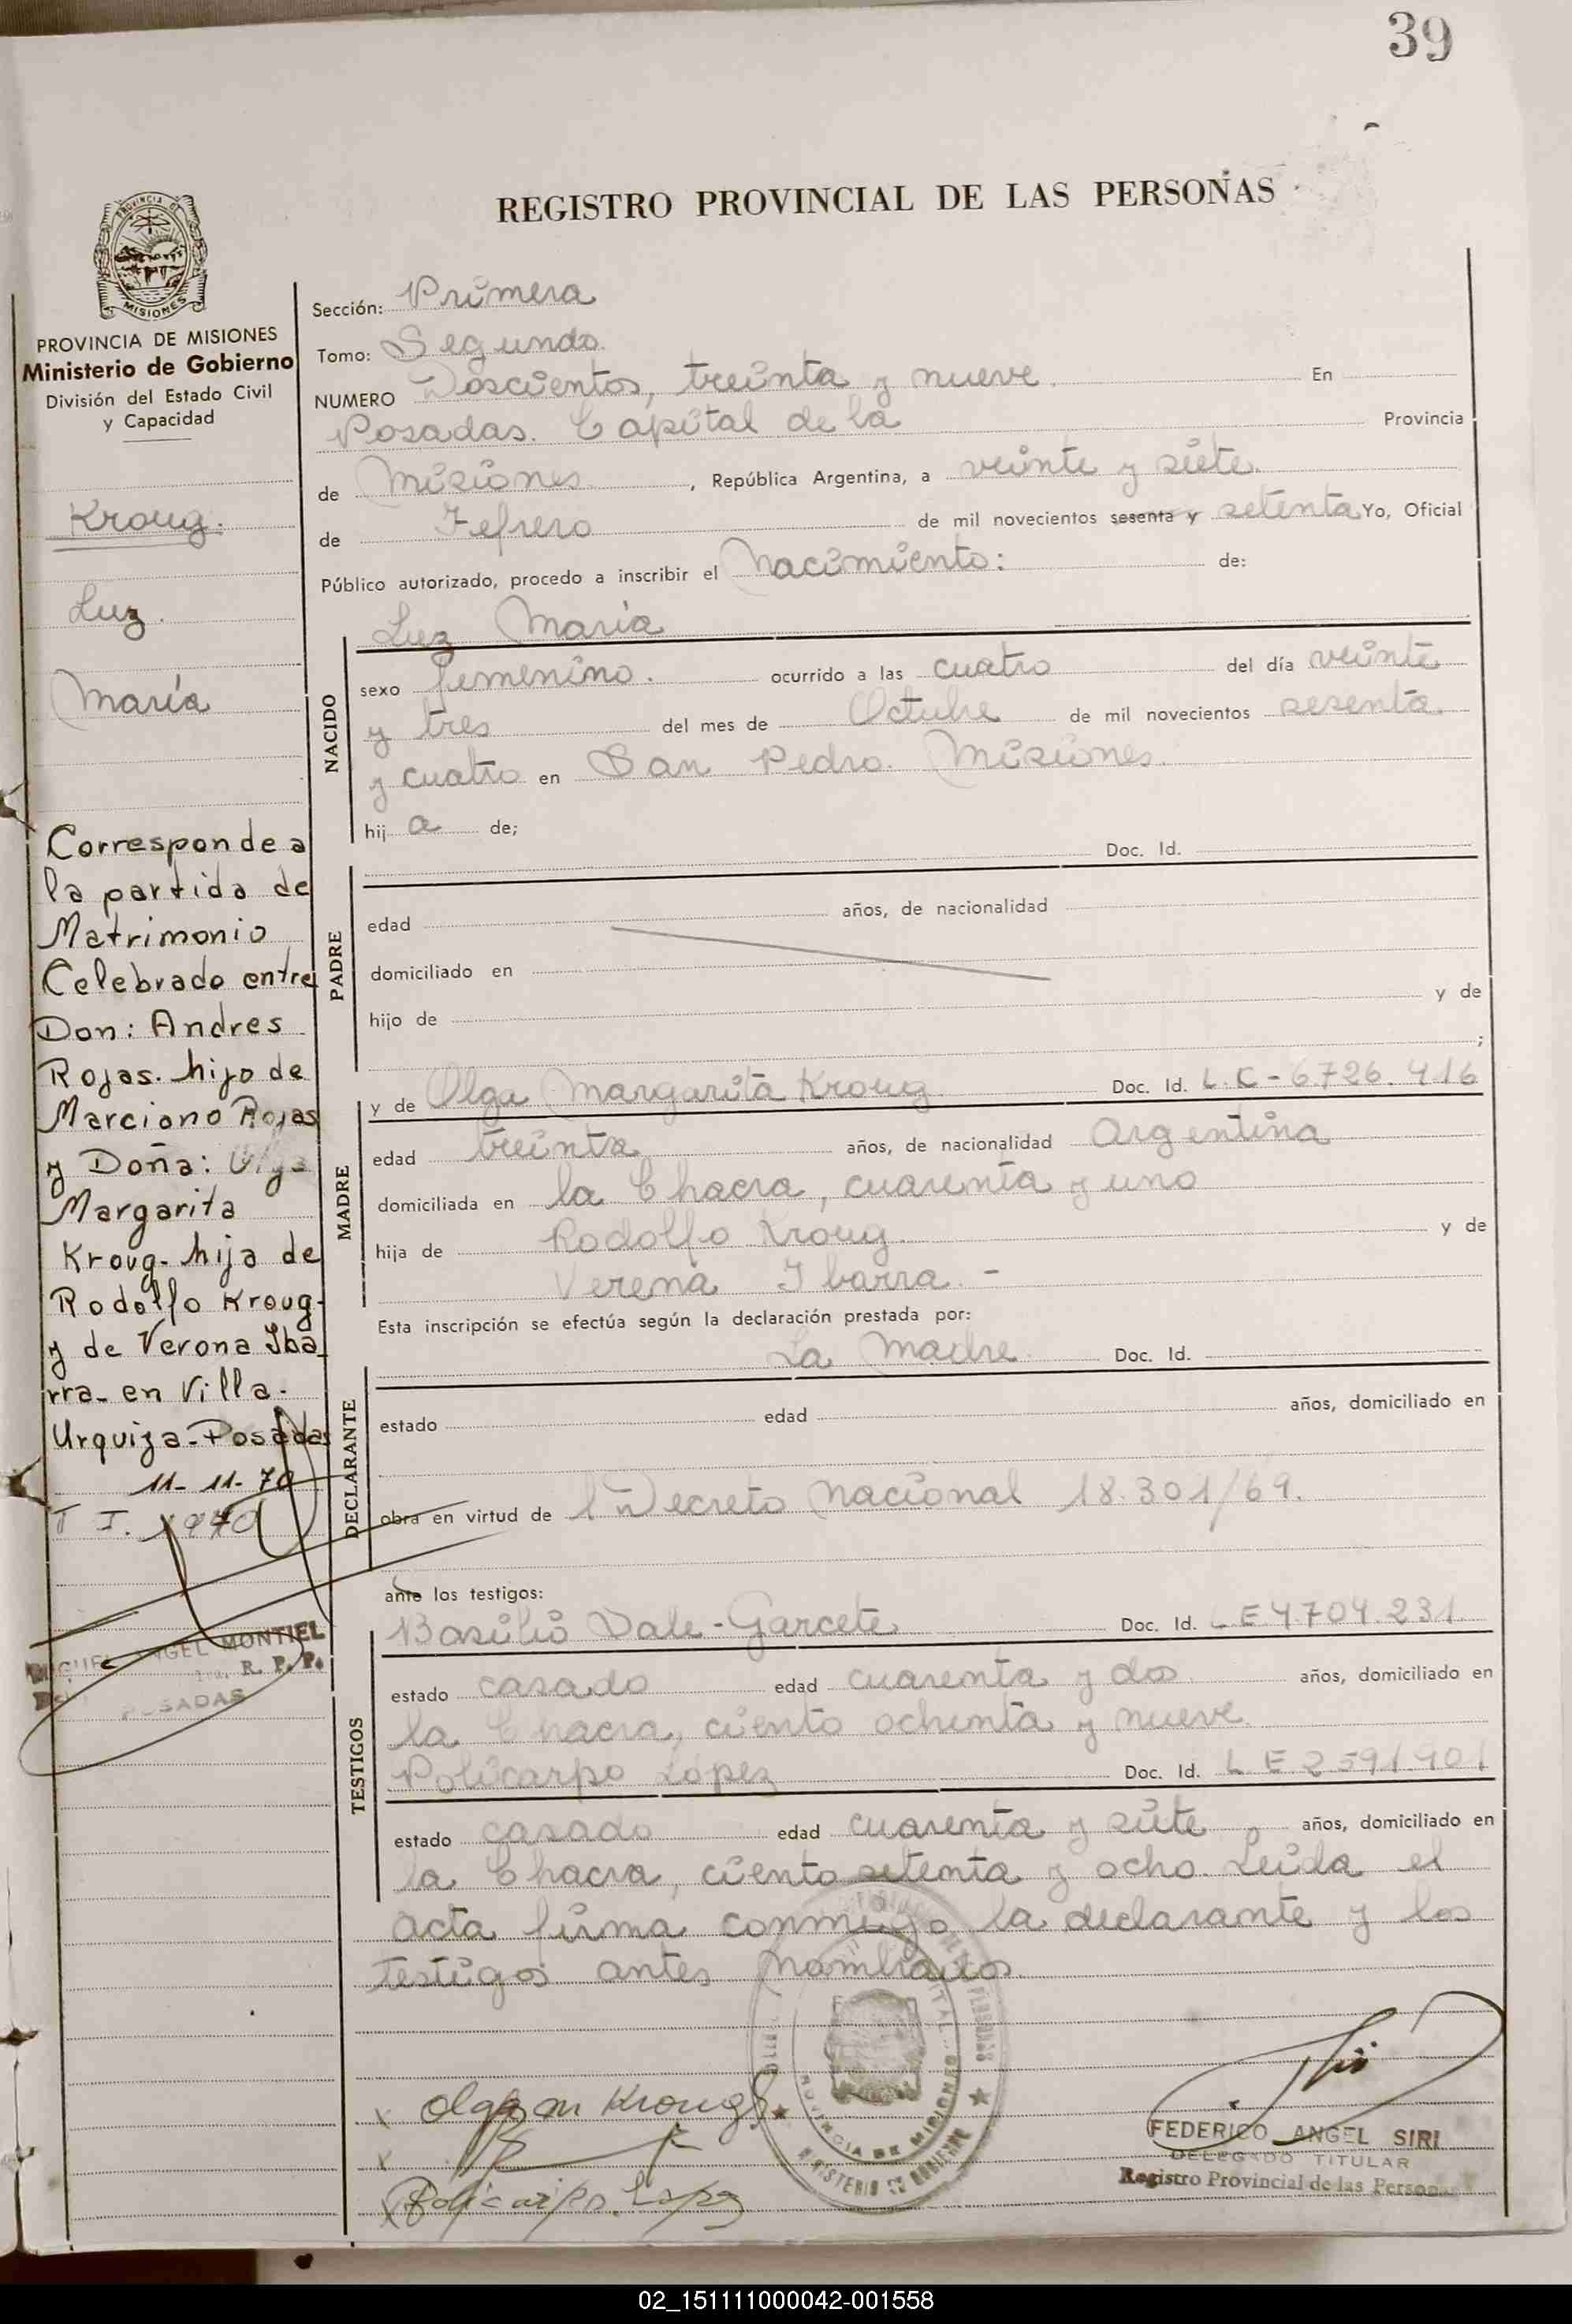 39
REGISTRO PROVINCIAL DE LAS PERSONAS
PROVINCIA DE MISIONES
Ministerio de Gobierno
División del Estado Civil
y Capacidad
Kroug.
Luz.
María
Corresponde a
la partida de
Matrimonio
Celebrado entre
Don: Andres
Rojas. hijo de
Marciano Rojas
y Doña: Olga
Margarita
Kroug- hija de
Rodolfo Kroug-
y de Verona Iba
rra- en Villa-
Urquiza-Posadas
11-11-70
T I. 1970
ANGEL MONTIEL
R. P. P.
POSADAS
Sección: Primera
Tomo: Segundo.
NUMERO Doscientos, treinta y nueve. En
Posadas. Capital de la Provincia
de Misiones, República Argentina, a veinte y siete.
de Febrero de mil novecientos sesenta y setenta Yo, Oficial
Público autorizado, procedo a inscribir el Nacimiento: de:
NACIDO
Luz María
sexo femenino. ocurrido a las cuatro del día veinte
y tres del mes de Octubre de mil novecientos sesenta.
y cuatro en San Pedro. Misiones.
hij a de;
PADRE
Doc. Id.
edad años, de nacionalidad
domiciliado en
hijo de y de
;
MADRE
y de Olga Margarita Kroug. Doc. Id. L.C-6.726.416
edad treinta años, de nacionalidad Argentina
domiciliada en la Chacra, cuarenta y uno
hija de Rodolfo Kroug. y de
Verena Ibarra. -
Esta inscripción se efectúa según la declaración prestada por:
DECLARANTE
La Madre Doc. Id.
estado edad años, domiciliado en
obra en virtud de Decreto Nacional 18.301/69.
ante los testigos:
TESTIGOS
Basilio Dale-Garcete Doc. Id. L E 4704.231.
estado casado edad cuarenta y dos años, domiciliado en
la Chacra, ciento ochenta y nueve.
Policarpo López Doc. Id. L.E.2.591.901
estado casado edad cuarenta y siete años, domiciliado en
la Chacra, ciento setenta y ocho. Leida el
acta firma conmigo la declarante y los
testigos antes nombrados.
x Olga M Kroug
x
x Policarpo Lopez
PROVINCIA DE MISIONES
MINISTERIO DE GOBIERNO
FEDERICO ANGEL SIRI
DELEGADO TITULAR
Registro Provincial de las Personas
02_151111000042-001558